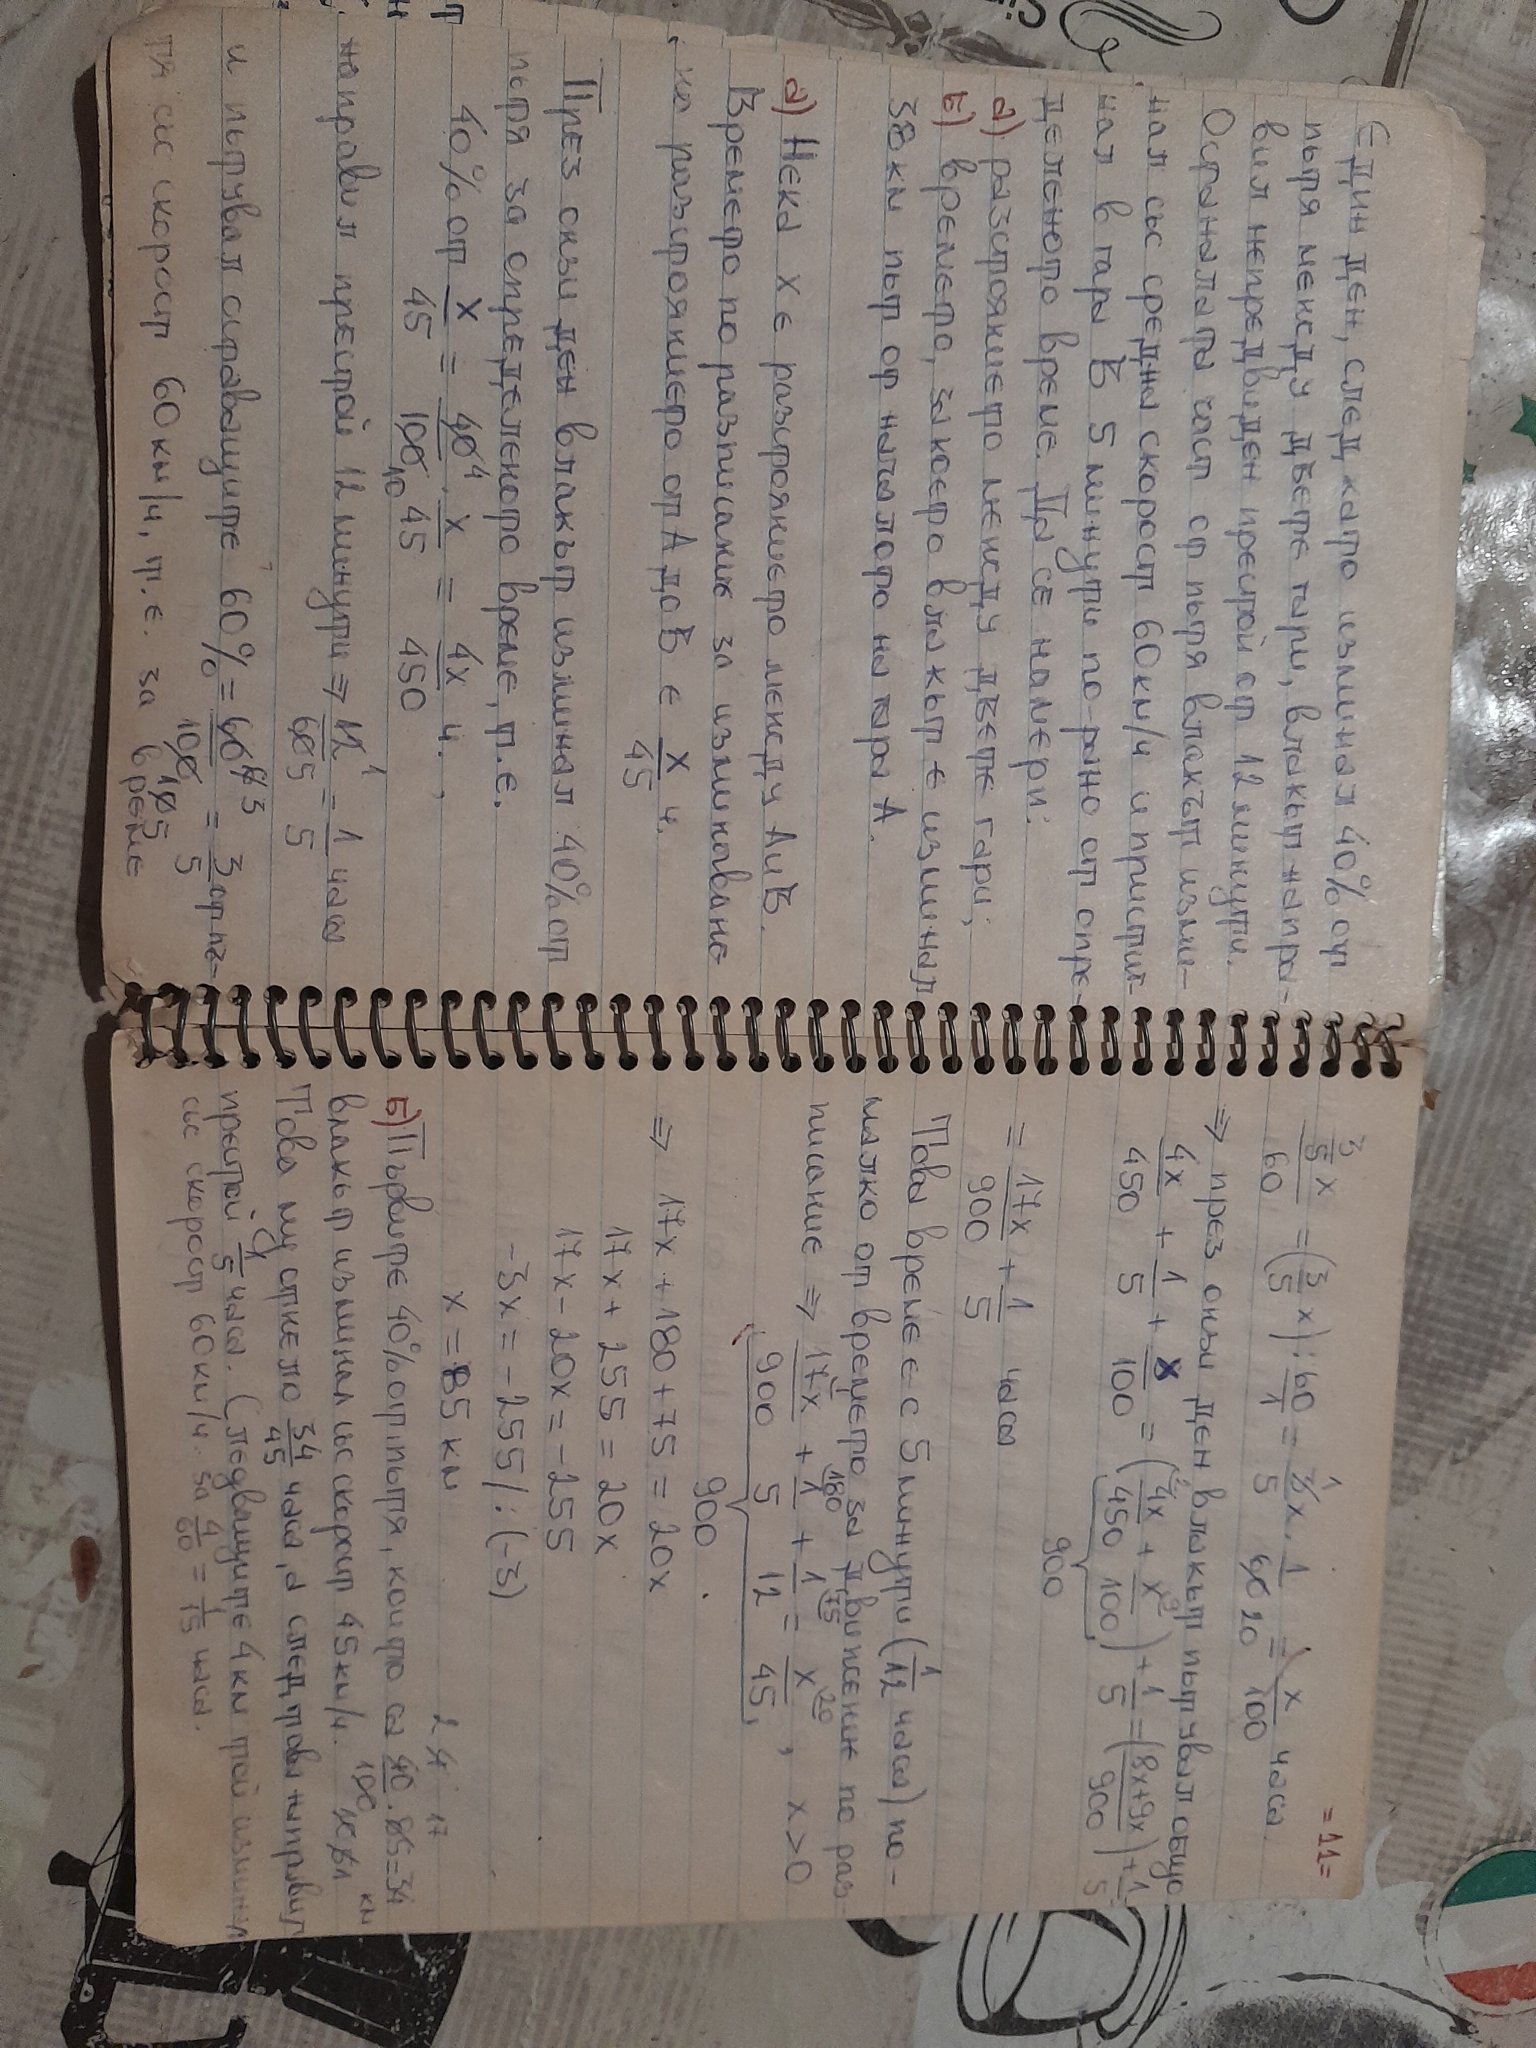 Един ден, след като изминал 40% от
пътя между двете гари, влакът напра-
вил непредвиден престой от 12 минути.
Останалата част от пътя влакът изми-
нал със средна скорост 60км/ч и пристиг-
нал в гара В 5 минути по-рано от опре-
деленото време. Да се намери:
а) разстоянието между двете гари;
б) времето, за което влакът е изминал
38км път от началото на гара А.
а) Нека х е разстоянието между А и В.
Времето по разписание за изминаване
на разстоянието от А до В е x/45 ч.
През онзи ден влакът изминал 40% от
пътя за определеното време, т.е.
40% от x/45 = 40/100 . x/45 = 4x/450 ч.,
направил престой 12 минути ⇒ 12/60 = 1/5 часа
и пътувал оставащите 60% = 60/100 = 3/5 от пъ-
тя със скорост 60км/ч, т.е. за време
=11=
3/5 x / 60 = (3/5 x) : 60/1 = 3/5 x . 1/60 = x/100 часа.
⇒ през онзи ден влакът пътувал общо
4x/450 + 1/5 + x/100 = (4x/450 + x/100) + 1/5 = (8x+9x/900) + 1/5
900
= 17x/900 + 1/5 часа
Това време е с 5 минути (1/12 часа) по-
малко от времето за движение по раз-
писание ⇒ 17x/900 + 1/5 + 1/12 = x/45, x>0
900
⇒ 17x + 180 + 75 = 20x
17x + 255 = 20x
17x - 20x = -255
-3x = -255 /:(-3)
x = 85 км
б) Първите 40% от пътя, които са 40/100 . 85 = 34 км
влакът изминал със скорост 45км/ч.
Това му отнело 34/45 часа, а след това направил
престой 1/5 часа. Следващите 4км той изминал
със скорост 60км/ч за 4/60 = 1/15 часа.